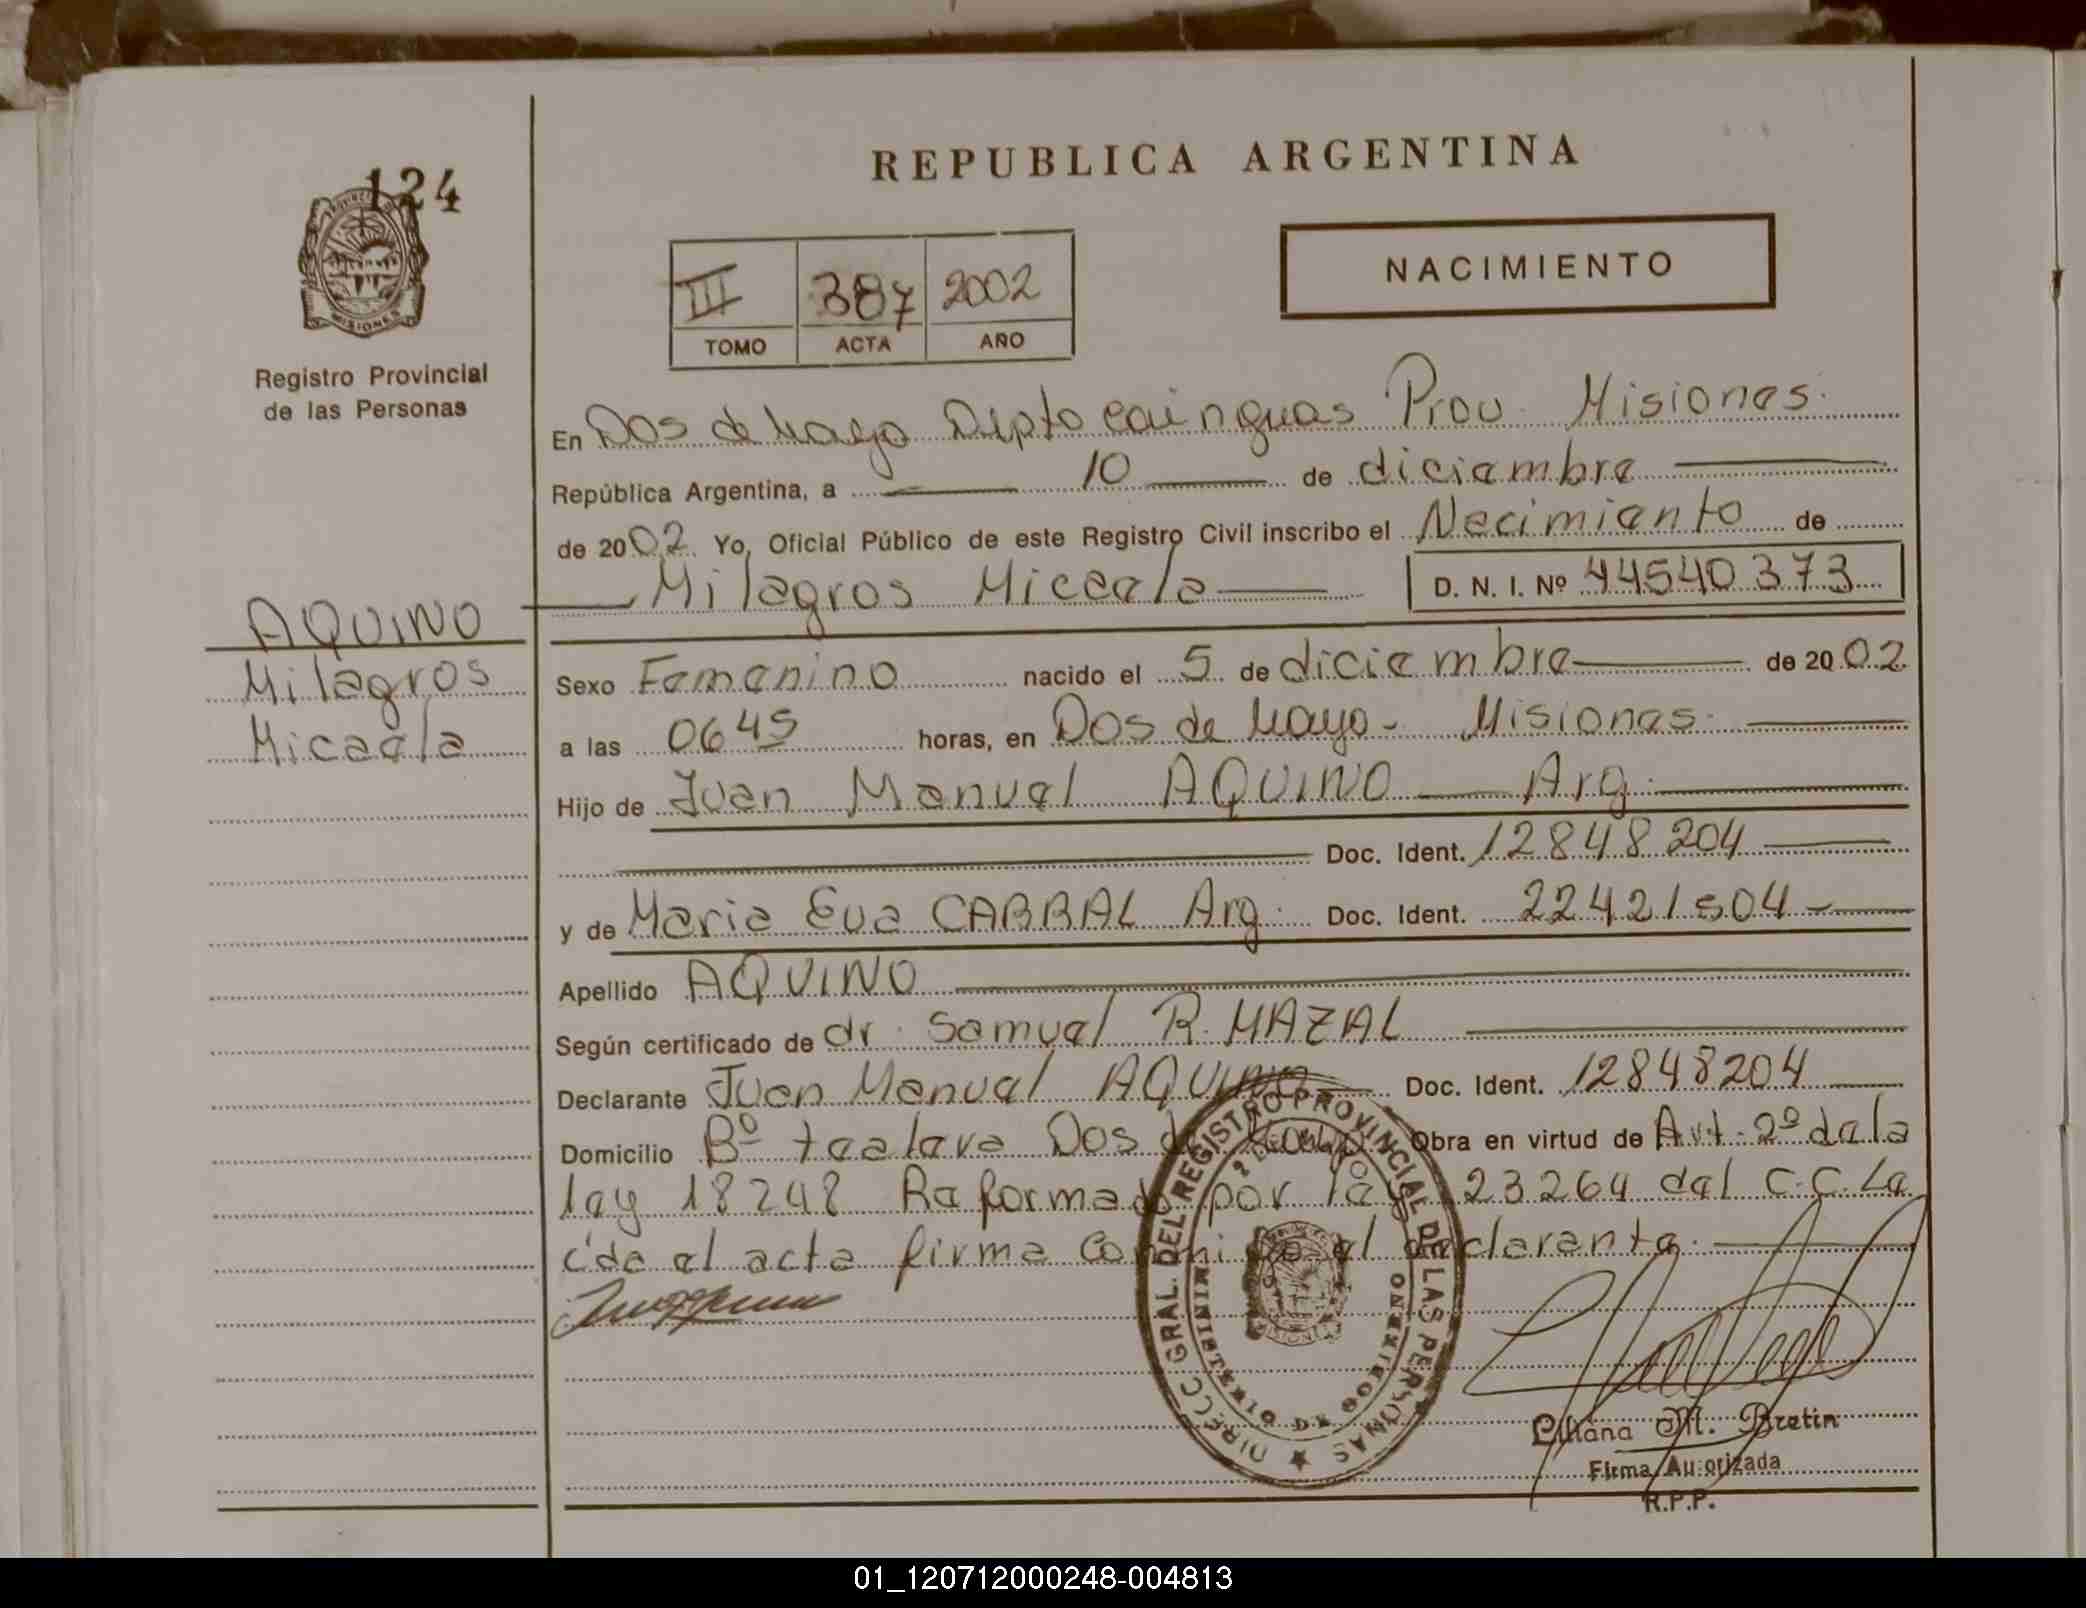 124
REPUBLICA ARGENTINA
NACIMIENTO
III 387 2002
TOMO ACTA AÑO
PROVINCIA
MISIONES
Registro Provincial
de las Personas
En Dos de Mayo Dpto Cainguas Prov. Misiones.
República Argentina, a 10 de diciembre
de 2002 Yo, Oficial Público de este Registro Civil inscribo el Necimiento de
Milagros Micaela D. N. I. Nº 44540373
AQUINO
Milagros
Micaela
Sexo Femenino nacido el 5 de diciembre de 2002
a las 0645 horas, en Dos de Mayo - Misiones.
Hijo de Juan Manuel AQUINO Arg.
Doc. Ident. 12848204
y de Maria Eva CABRAL Arg. Doc. Ident. 22421504
Apellido AQUINO
Según certificado de dr. Samuel R. MAZAL
Declarante Juan Manuel AQUINO Doc. Ident. 12848204
Domicilio Bº Dos de Mayo Obra en virtud de Art. 2º de la
ley 18248 Reformado por ley 23264 del C.C. Le
ida el acta firma conmigo el declarante.
DIRECC GRAL. DEL REGISTRO PROVINCIAL DE LAS PERSONAS
MINISTERIO DE GOBIERNO
Liliana M. Bretin
Firma Autorizada
R.P.P.
01_120712000248-004813